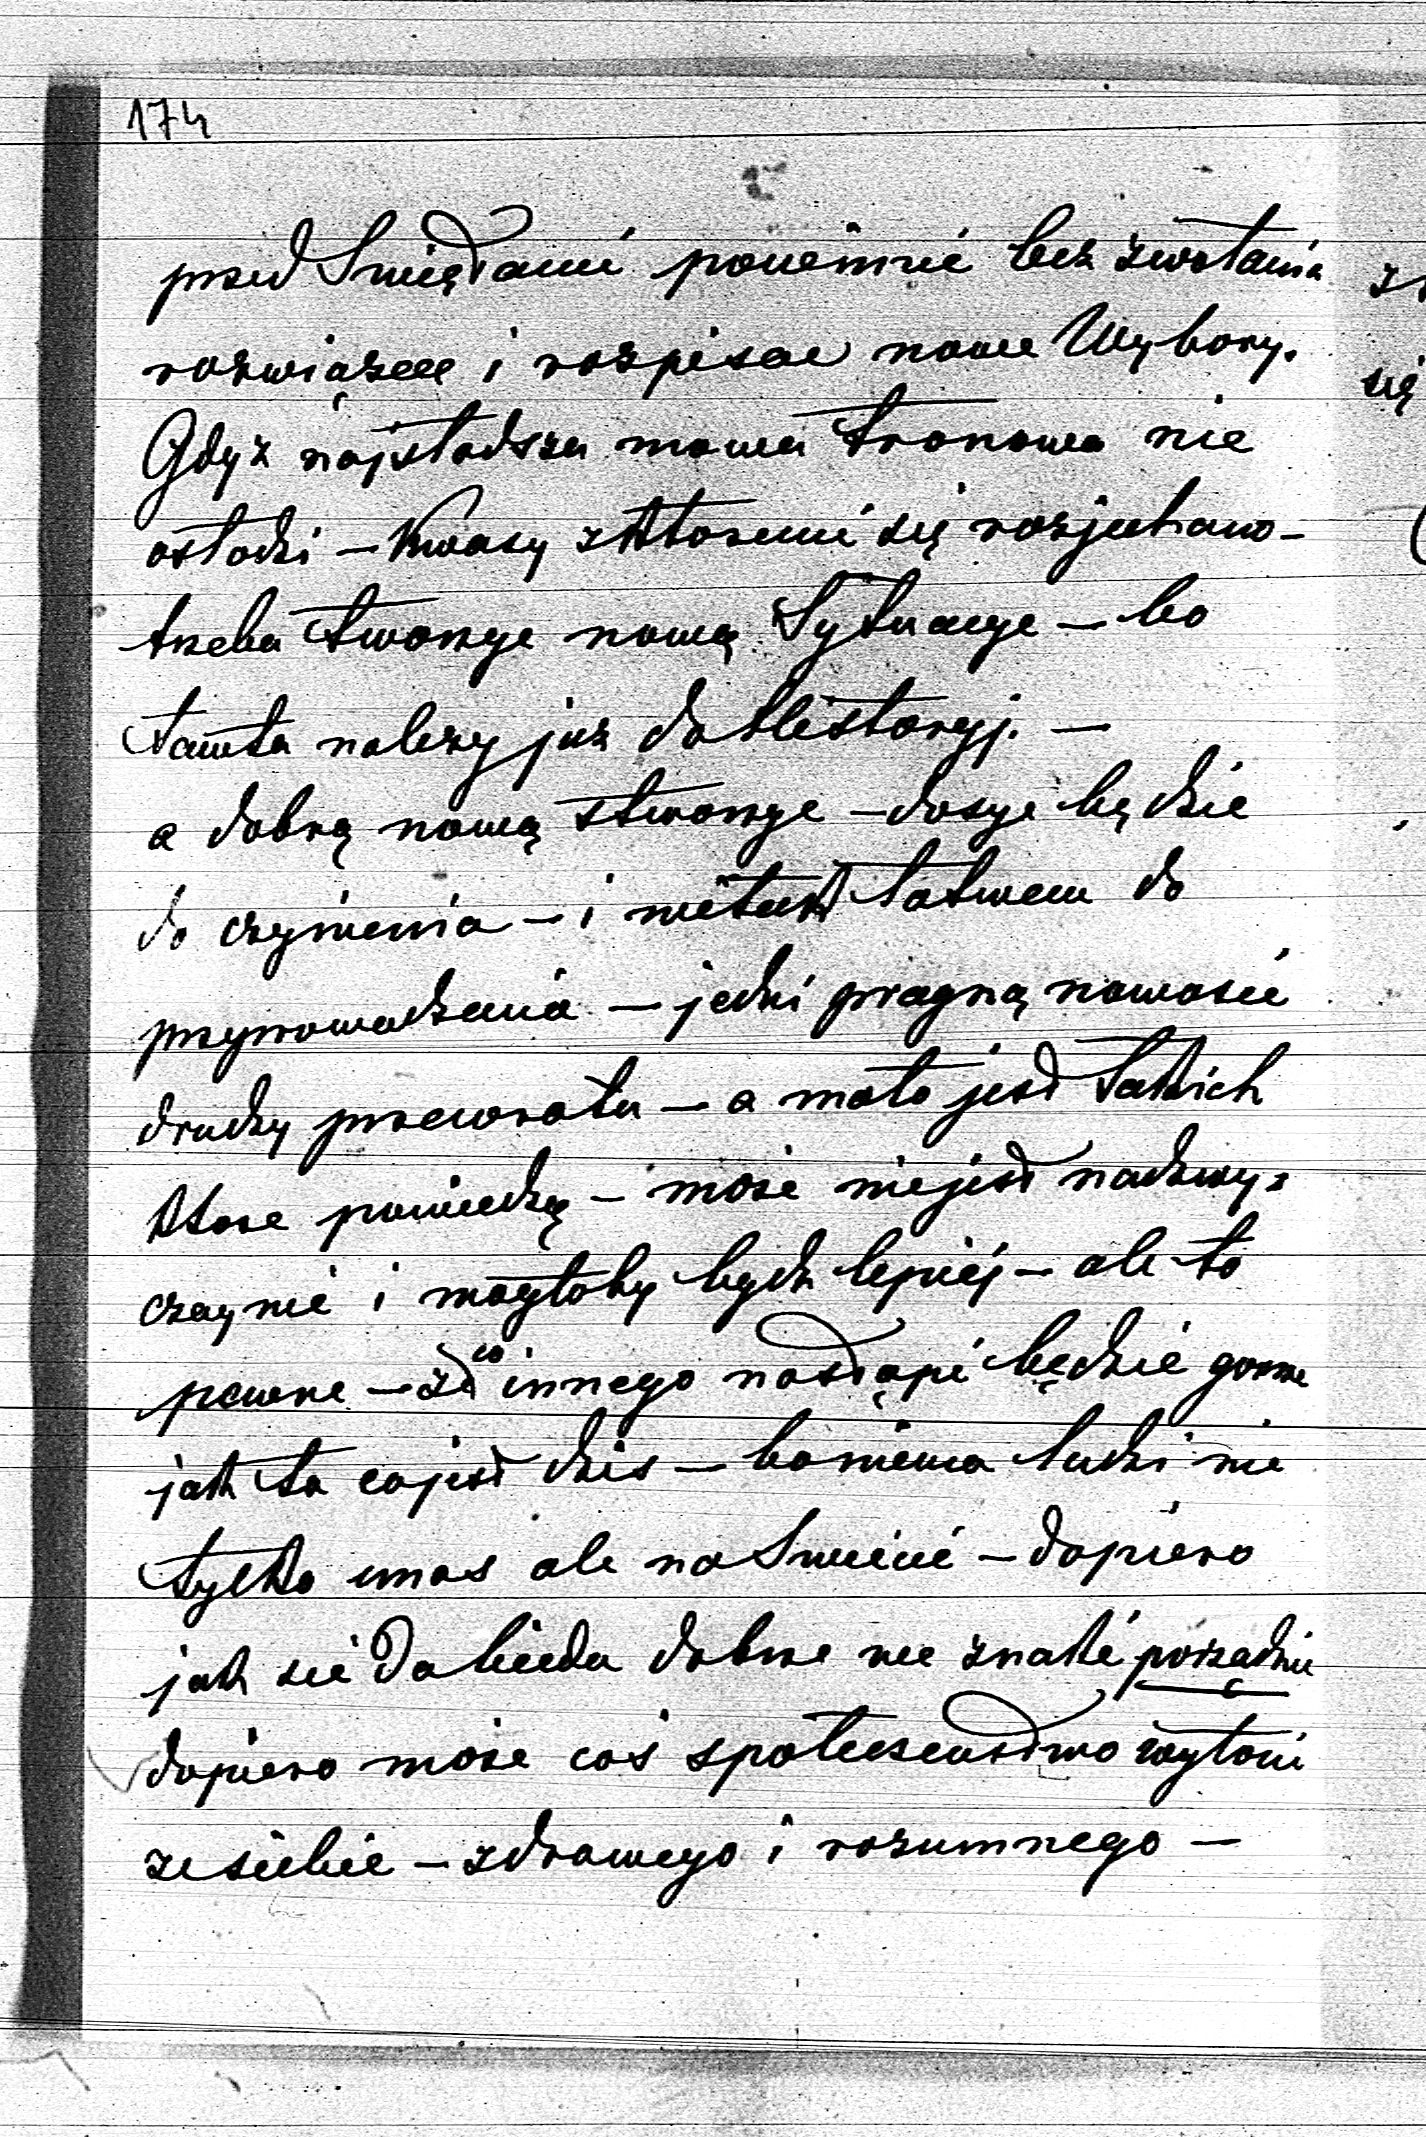 174
przed Swiętami powinni bez zwołania
rozwiązać i rozpisac nowe Wybory.
Gdyż najsłodsza mowa tronowa nie
osłodzi – Kwasy z któremi się rozjechano –
trzeba tworzyc nową Sytuacye – bo
tamta nalezy juz do Historyj. –
a dobrą nową stworzyc – dosyc będzie
do czynienia – i nietak łatwem do
przyprowadzenia – jedni pragną nowości
drudzy przewrotu – a mało jest takich
ktore powiedzą – może niejest nadzwy-
czajnie i mogłoby bydz lepiej – ale to
pewne – ze co innego nastąpi będzie gorsze
jak to cojest dzis – boniema ludzi nie
tylko unas ale na Swiecie – dopiero
jak sie da bieda dobrze we znaki porządnie
dopiero może coś społeczenstwo wyłoni
ze siebie – zdrowego i rozumnego –